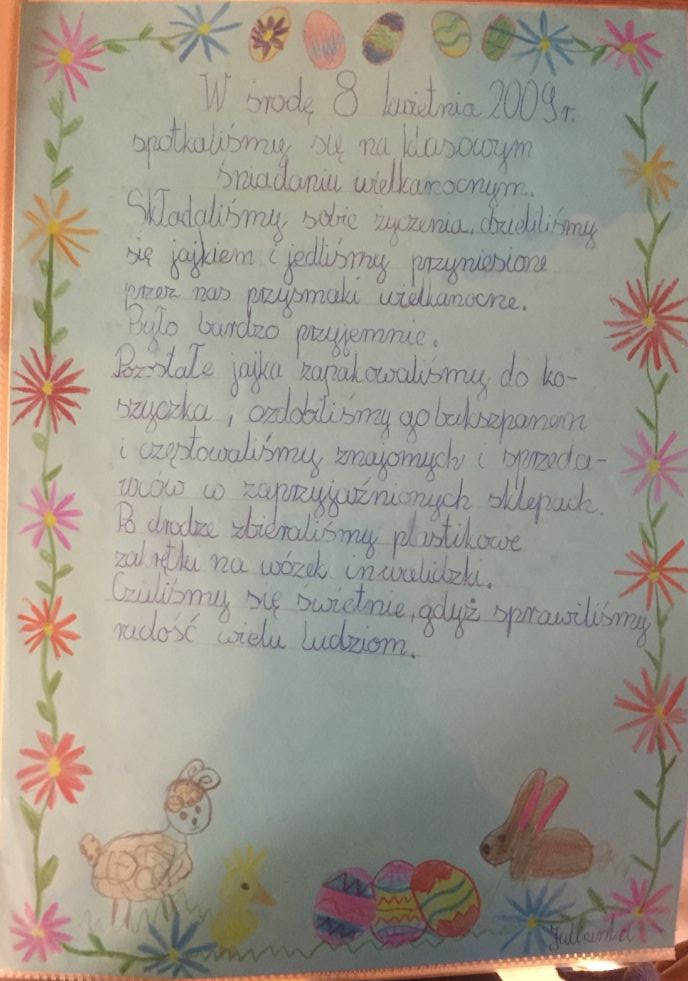 W środę 8 kwietnia 2009 r.
spotkaliśmy się na klasowym
śniadaniu wielkanocnym.
Składaliśmy sobie życzenia, dzieliliśmy
się jajkiem i jedliśmy przyniesione
przez nas przysmaki wielkanocne.
Było bardzo przyjemnie.
Pozostałe jajka zapakowaliśmy do ko-
szyczka, ozdobiliśmy go bukszpanem
i częstowaliśmy znajomych i sprzeda-
wców w zaprzyjaźnionych sklepach.
Po drodze zbieraliśmy plastikowe
zakrętki na wózek inwalidzki.
Czuliśmy się świetnie, gdyż sprawiliśmy
radość wielu ludziom.